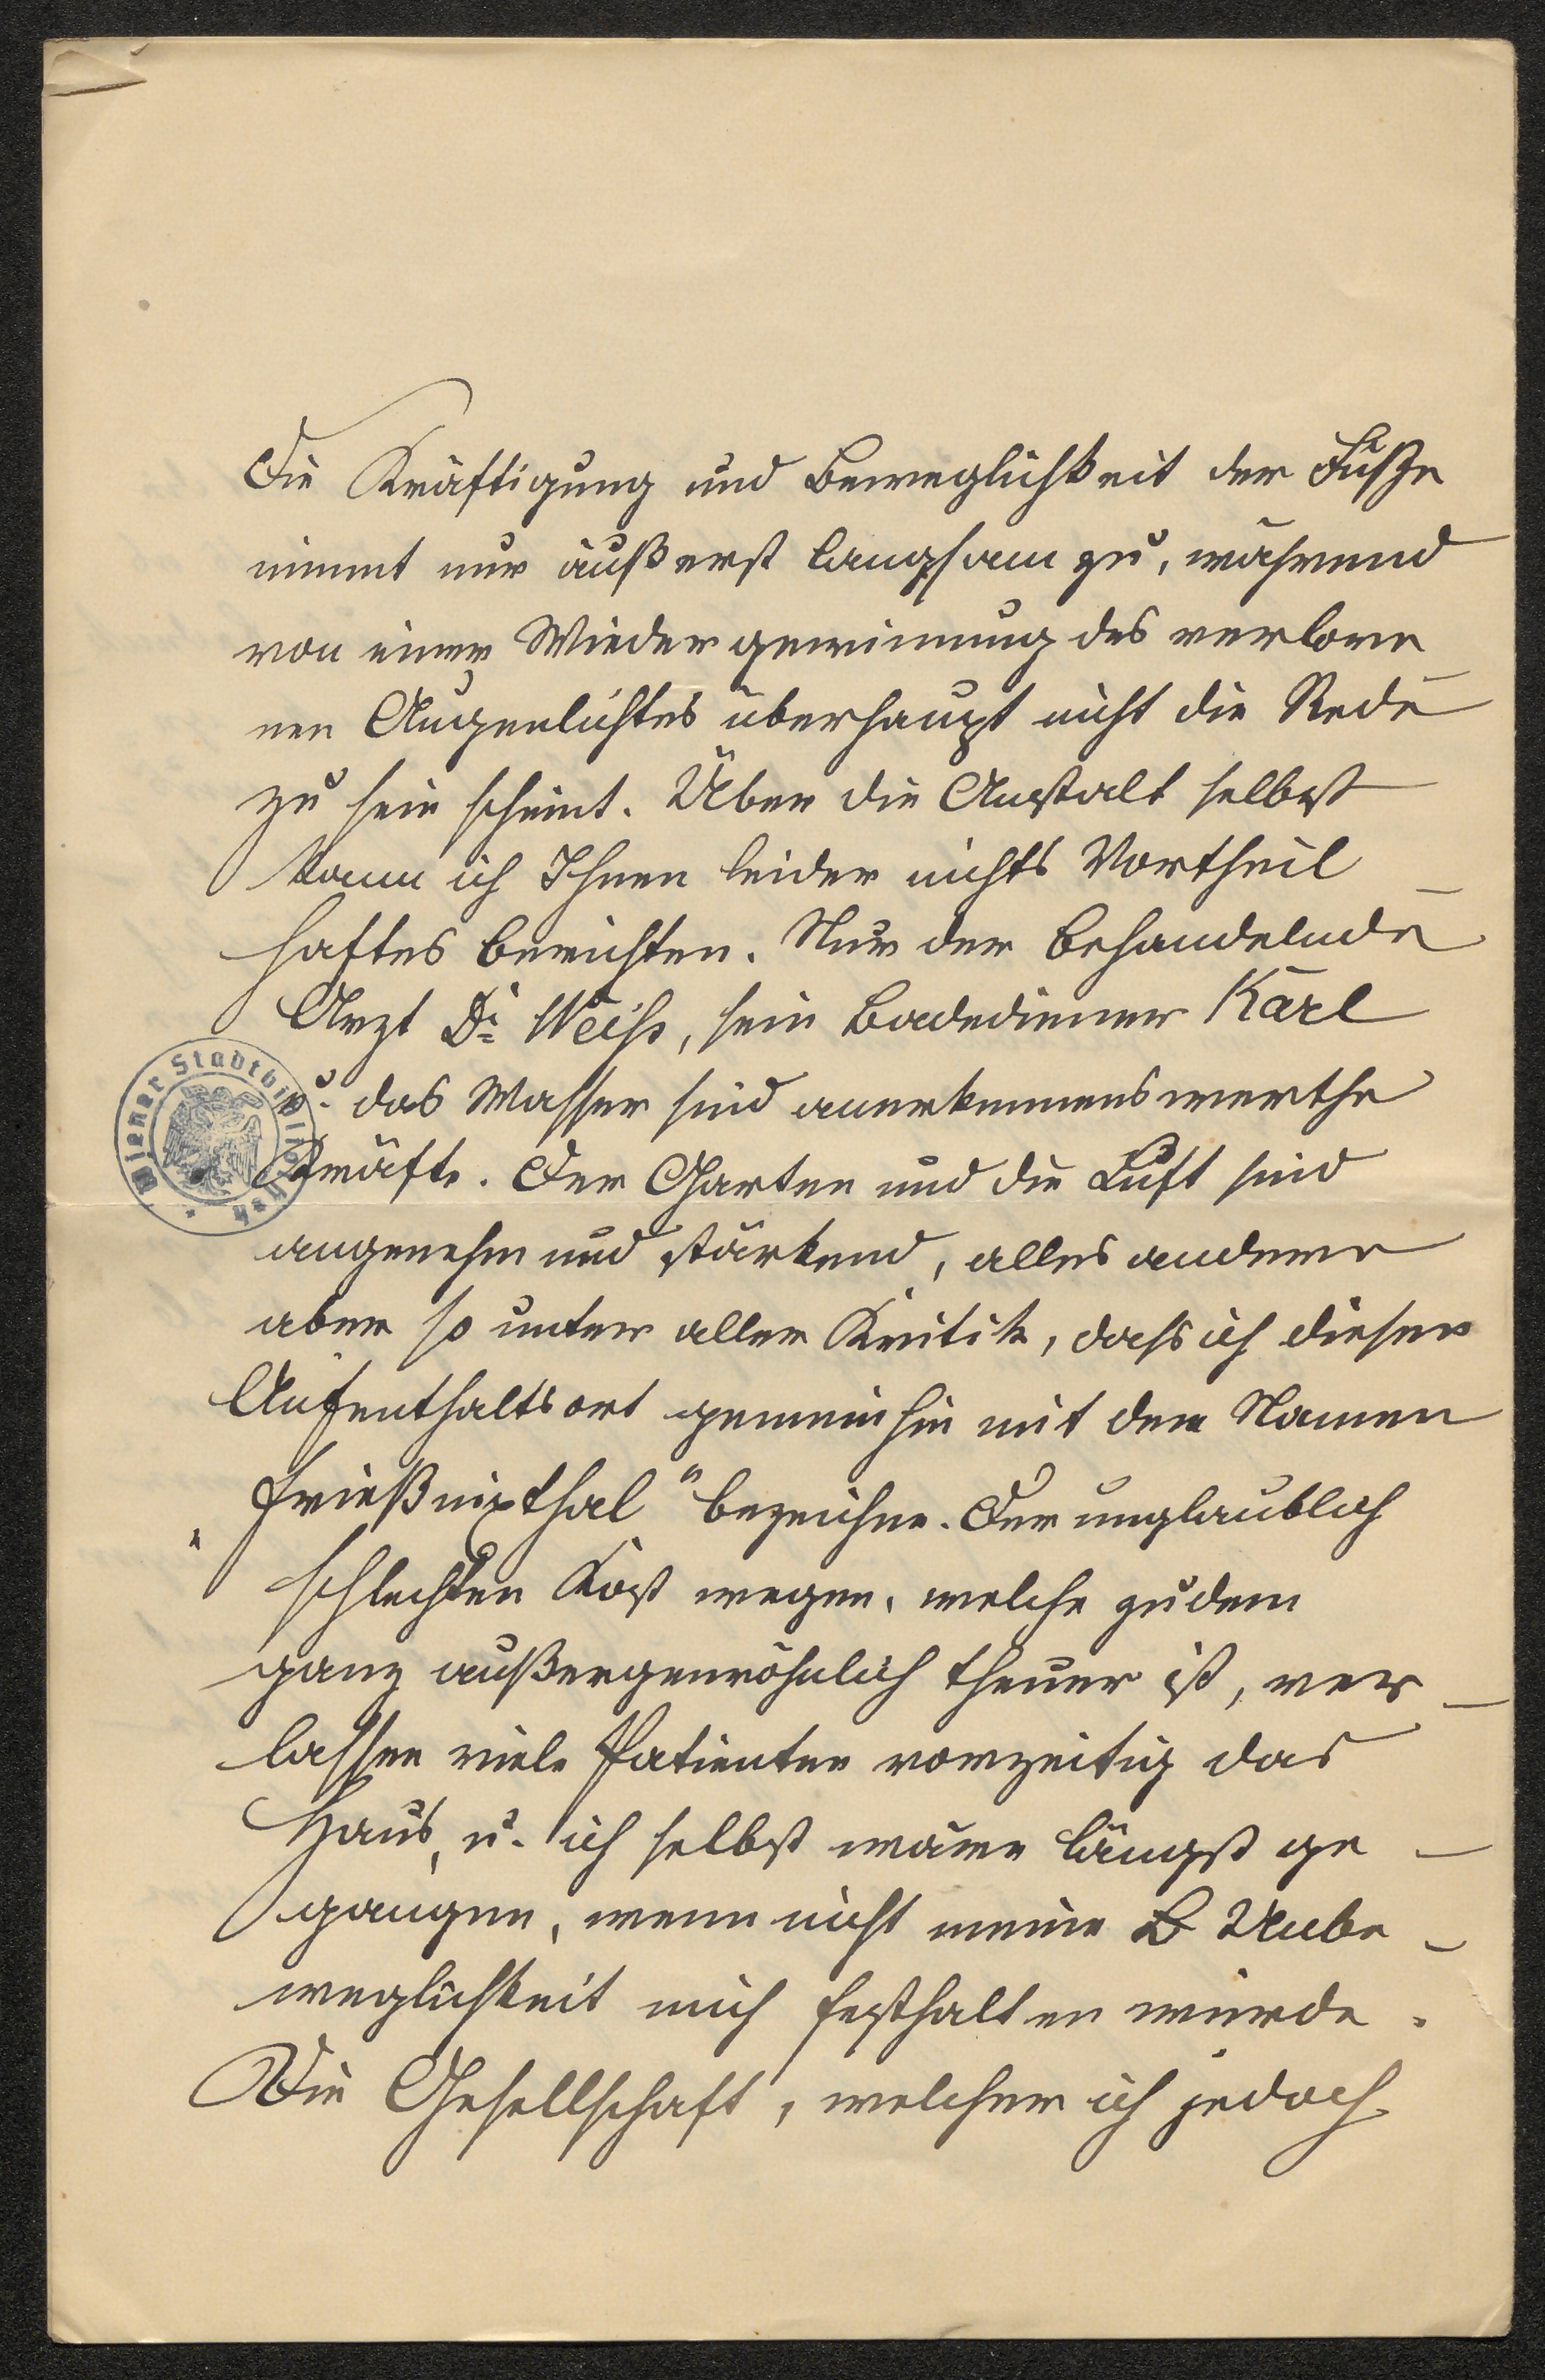 Die Kräftigung und Beweglichkeit der Füße
nimmt nur äußerst langsam zu, während
von einer Wiedergewinnung des verlore
nen Augenlichtes überhaupt nicht die Rede
zu sein scheint. Über die Anstalt selbst
kann ich Ihnen leider nichts Vortheil-
haftes berichten. Nur der behandelnde
Arzt Dr Weiss, sein Badediener Karl
u. das Wasser sind anerkennenswerthe
Kräfte. Der Garten und die Luft sind
angenehm und stärkend, alles andere
aber so unter aller Kritik, dass ich diesen
Aufenthaltsort gemeinhin mit dem Namen
„Frießnixthal“ bezeichne. Der unglaublich
schlechten Kost wegen, welche zudem
ganz außergewöhnlich theuer ist, ver-
lassen viele Patienten vorzeitig das
Haus, u. ich selbst wäre längst ge-
gangen, wenn nicht meine B Unbe-
weglichkeit mich festhalten würde.
Die Gesellschaft, welcher ich jedoch
Wiener Stadtbibliothek